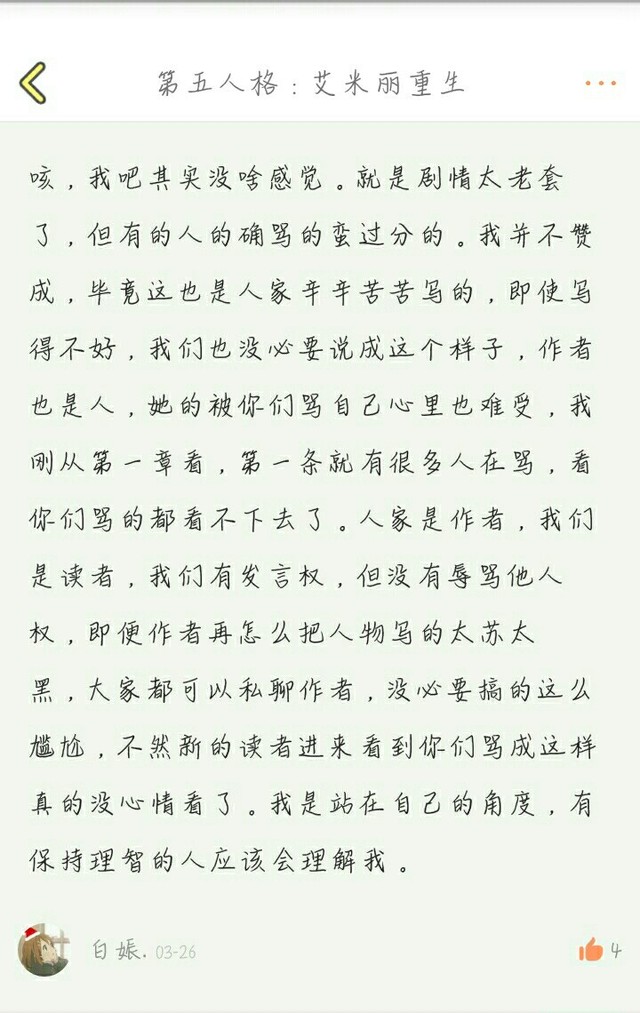 第五人格：艾米丽重生
咳，我吧其实没啥感觉。就是剧情太老套
了，但有的人的确骂的蛮过分的。我并不赞
成，毕竟这也是人家辛辛苦苦写的，即使写
得不好，我们也没必要说成这个样子，作者
也是人，她的被你们骂自己心里也难受，我
刚从第一章看，第一条就有很多人在骂，看
你们骂的都看不下去了。人家是作者，我们
是读者，我们有发言权，但没有辱骂他人
权，即便作者再怎么把人物写的太苏太
黑，大家都可以私聊作者，没必要搞的这么
尴尬，不然新的读者进来看到你们骂成这样
真的没心情看了。我是站在自己的角度，有
保持理智的人应该会理解我。
白娠. 03-26 4